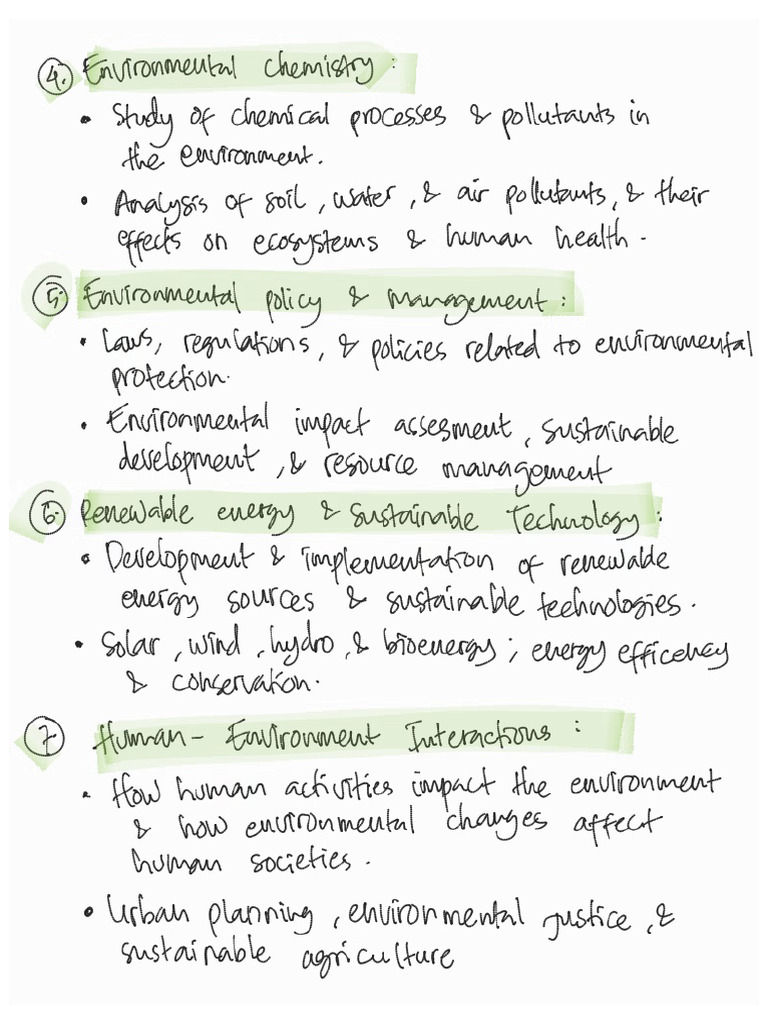 4. Environmental chemistry:
• Study of chemical processes & pollutants in
the environment.
• Analysis of soil, water, & air pollutants, & their
effects on ecosystems & human health.
5. Environmental policy & management:
• Laws, regulations, & policies related to environmental
protection.
• Environmental impact assesment, sustainable
development, & resource management
6. Renewable energy & Sustainable Technology:
• Development & implementation of renewable
energy sources & sustainable technologies.
• Solar, wind, hydro, & bioenergy; energy efficency
& conservation.
7. Human-Environment Interactions:
• How human activities impact the environment
& how environmental changes affect
human societies.
• Urban planning, environmental justice, &
sustainable agriculture